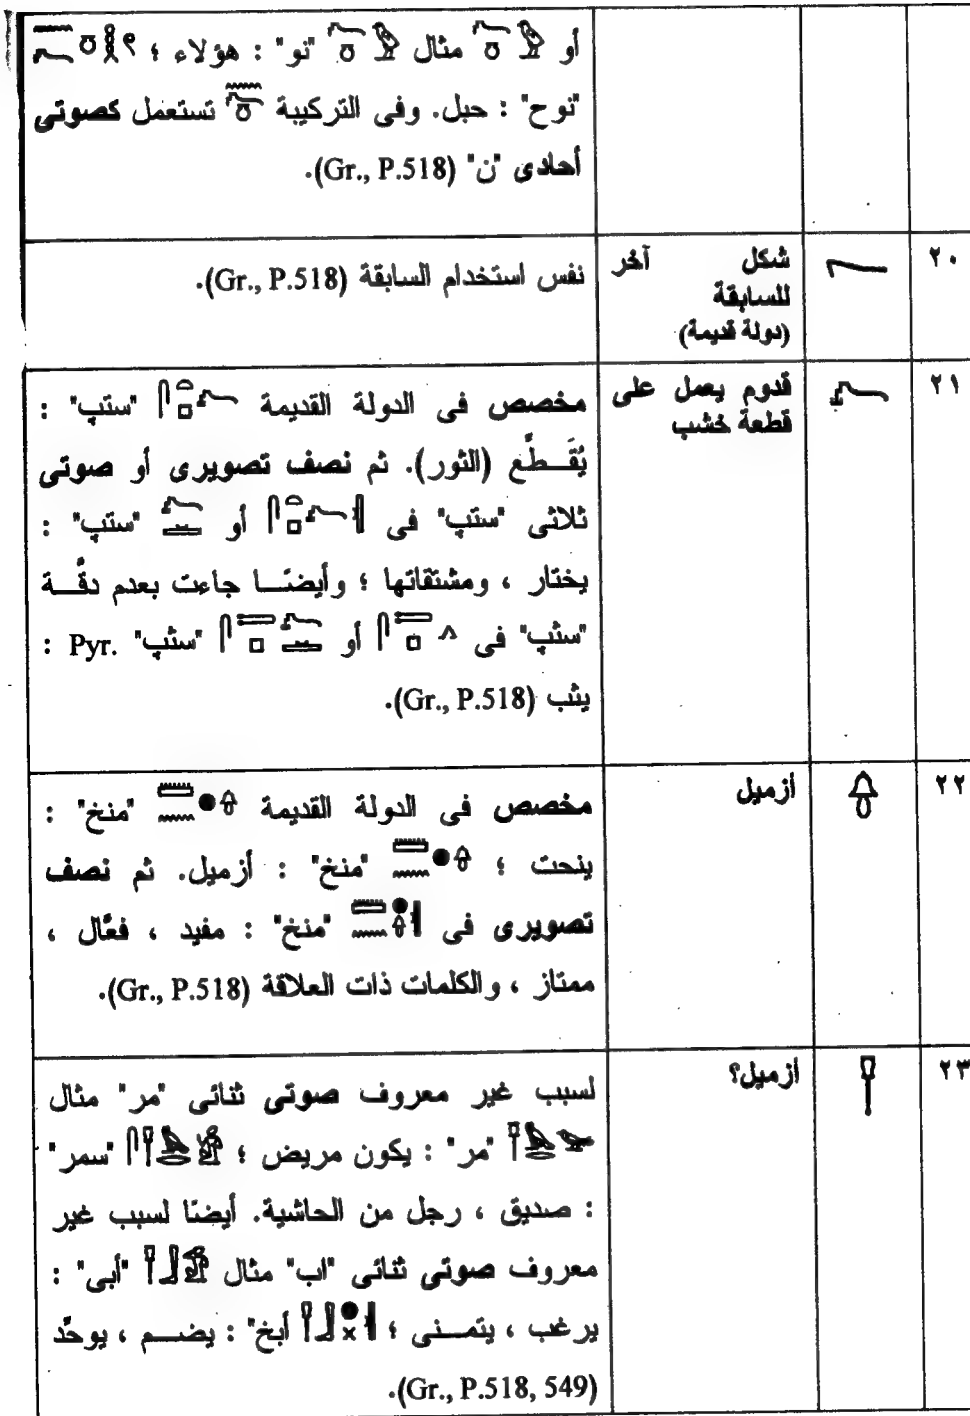 أو مثال "نو" : هؤلاء ؛
"نوح" : حبل. وفى التركيبة تستعمل كصوتى
أحادى "ن" (Gr., P.518).
٢٠
شكل آخر
للسابقة
(دولة قديمة)
نفس استخدام السابقة (Gr., P.518).
٢١
قدوم يعمل على
قطعة خشب
مخصص فى الدولة القديمة "ستپ" :
يُقَـطَّع (الثور). ثم نصف تصويرى أو صوتى
ثلاثى "ستپ" فى أو "ستپ" :
يختار ، ومشتقاتها ؛ وأيضًـا جاءت بعدم دقَّـة
"سثپ" فى أو "سثپ" Pyr. :
يثب (Gr., P.518).
٢٢
أزميل
مخصص فى الدولة القديمة "منخ" :
ينحت ؛ "منخ" : أزميل. ثم نصف
تصويرى فى "منخ" : مفيد ، فعَّال ،
ممتاز ، والكلمات ذات العلاقة (Gr., P.518).
٢٣
أزميل؟
لسبب غير معروف صوتى ثنائى "مر" مثال
"مر" : يكون مريض ؛ "سمر"
: صديق ، رجل من الحاشية. أيضًا لسبب غير
معروف صوتى ثنائى "اب" مثال "أبى" :
يرغب ، يتمـنى ؛ أبخ" : يضـم ، يوحَّد
(Gr., P.518, 549).